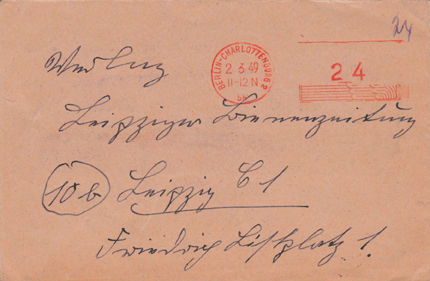 24
BERLIN-CHARLOTTENBURG 2
2.3.49
11-12 N
24
Verlag
Leipziger Bienenzeitung
10b Leipzig C 1
Friedrich Listplatz 1.